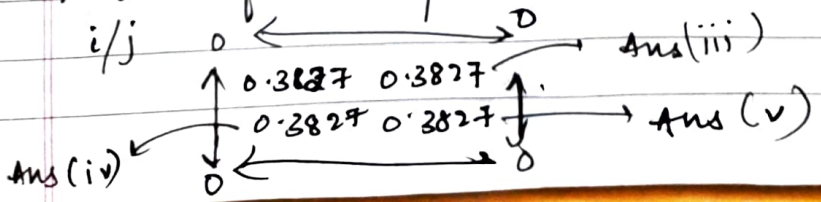 i/j 0 0
0.3827 0.3827 Ans(iii)
0.3827 0.3827 Ans (v)
Ans(iv) 0 0